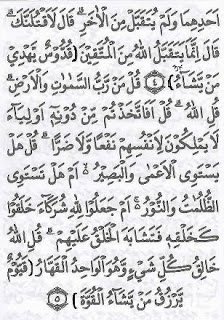 حَدِهِمَا وَلَمْ يُتَقَبَّلْ مِنَ الْآخَرِ ۗ قَالَ لَأَقْتُلَنَّكَ ۗ
قَالَ إِنَّمَا يَتَقَبَّلُ اللهُ مِنَ الْمُتَّقِينَ (قُدُّوسٌ يَهْدِي
مَنْ يَشَاءُ) ﴿٤﴾ قُلْ مَنْ رَبُّ السَّمٰوَاتِ وَالْأَرْضِ ۗ
قُلِ اللهُ ۗ قُلْ أَفَاتَّخَذْتُمْ مِنْ دُونِهِ أَوْلِيَاءَ
لَا يَمْلِكُونَ لِأَنْفُسِهِمْ نَفْعًا وَلَا ضَرًّا ۗ قُلْ هَلْ
يَسْتَوِي الْأَعْمَى وَالْبَصِيرُ ۙ أَمْ هَلْ تَسْتَوِي
الظُّلُمَاتُ وَالنُّورُ ۚ أَمْ جَعَلُوا لِلّٰهِ شُرَكَاءَ خَلَقُوا
كَخَلْقِهِ فَتَشَابَهَ الْخَلْقُ عَلَيْهِمْ ۗ قُلِ اللهُ
خَالِقُ كُلِّ شَيْءٍ وَهُوَ الْوَاحِدُ الْقَهَّارُ (قَيُّومٌ
يَرْزُقُ مَنْ يَشَاءُ الْقُوَّةَ) ﴿٥﴾